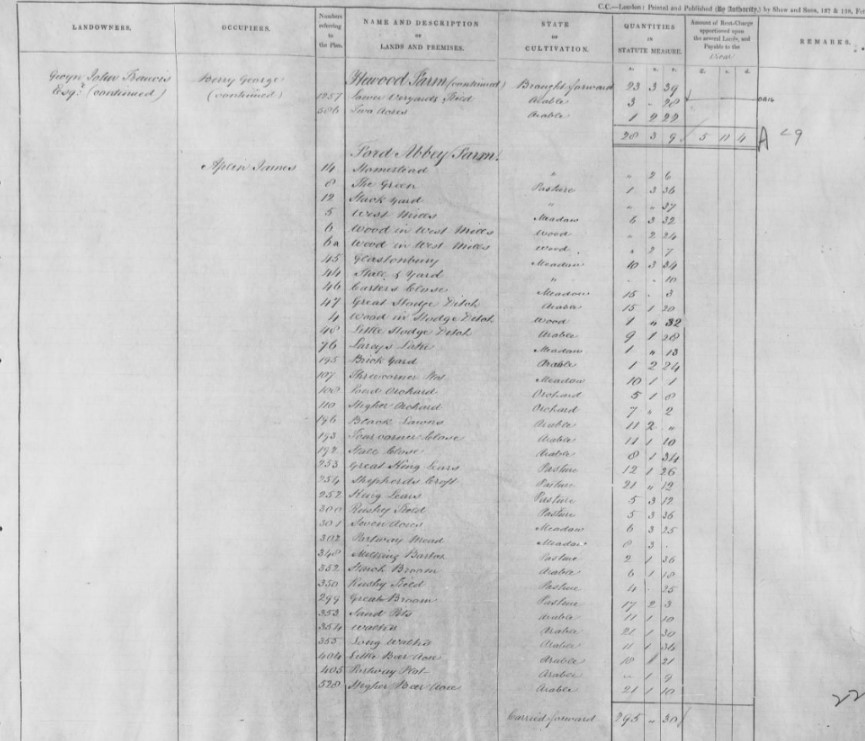 C.C.—London: Printed and Published (By Authority,) by Shaw and Sons, 137 & 138,
LANDOWNERS. OCCUPIERS. Numbers referring to the Plan. NAME AND DESCRIPTION OF LANDS AND PREMISES. STATE OF CULTIVATION. QUANTITIES IN STATUTE MEASURE. Amount of Rent-Charge apportioned upon the several Lands, and Payable to the REMARKS.
A. R. P. £. s. d.
Gwyn John Francis Berry George Farm (continued) Brought forward 23 3 39
Esqr. (continued) (continued) 1257 Lower Field Arable 3 - 28
506 Two Acres Arable 1 2 22
28 3 9 5 11 4 A 9
Ford Abbey Farm.
Aplin James 14 Homestead " " 2 6
8 The Green Pasture 1 3 36
12 Stack Yard " " " 37
5 West Mills Meadow 6 3 32
6 Wood in West Mills Wood " 2 24
6a Wood in West Mills Wood " 2 7
45 Glastonbury Meadow 10 3 34
44 Stall & Yard " - - 10
46 Carters Close Meadow 15 - 3
47 Great Hodge Ditch Arable 15 1 20
4 Wood in Hodge Ditch Wood 1 " 32
48 Little Hodge Ditch Arable 9 1 38
76 Lake Meadow 1 " 13
195 Brick Yard Arable 1 2 24
107 Meadow 10 1 1
108 Orchard Orchard 5 1 8
110 Higher Orchard Orchard 7 " 2
196 Black Lawns Arable 11 2 "
193 Four corner Close Arable 11 1 10
192 Stall Close Arable 8 1 34
253 Great King Lears Pasture 12 1 26
254 Shepherds Croft Pasture 21 " 12
252 King Lears Pasture 5 3 12
300 Rushy Field Pasture 5 3 26
301 Seven Acres Meadow 6 3 25
302 Partway Mead Meadow 8 3 -
348 Milking Barton Pasture 2 1 36
352 Broom Arable 6 1 18
350 Rushy Field Pasture 4 - 35
299 Great Broom Pasture 17 2 3
353 Sand Pits Arable 11 1 10
354 Arable 21 1 30
355 Long Arable 11 1 34
404 Little Bear Acre Arable 18 1 21
405 Partway Plot Arable " 1 9
528 Higher Bear Acre Arable 21 1 10
Carried forward 295 - 30
22